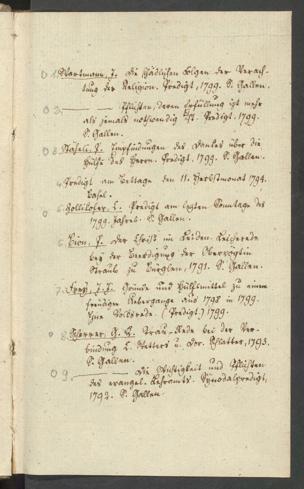 1. Hartmann, J. Die schädlichen Folgen der Verach-
tung der Religion. Predigt, 1799. S. Gallen.
2. — — Pflichten, deren Erfüllung izt mehr
als jemals nothwendig ist. Predigt. 1799.
S. Gallen.
3. Stähele, J. Empfindungen des Dankes über die
Hülfe des Herrn. Predigt. 1799. S. Gallen.
4. Predigt am Bettage den 11. Herbstmonat 1794.
Basel.
5. Zollikofer, C. Predigt am lezten Sonntage des
1799. Jahres. S. Gallen.
6. Bion, J. Der Christ im Leiden. Leichrede
bey der Beerdigung der Obervogtin
Straub zu Bürglen, 1791. S. Gallen.
7. J. J. Gründe und Hülfsmittel zu einem
freudigen Uebergange aus 1798 in 1799.
Eine Volksrede. (Predigt.) 1799.
8. Scherrer, G. C. Trau-Rede bei der Ver-
bindung C. Stetters u. Dor. Schlatter, 1793.
S. Gallen.
9. — — Die Wichtigkeit und Pflichten
des evangel. Lehramts. Synodalpredigt,
1792. S. Gallen.